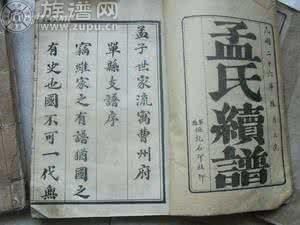 族谱网
www.zupu.cn
孟氏續譜
石印
孟子世家流寓曹州府
單縣支譜序
竊維家之有譜猶國之
有史也國不可一代無